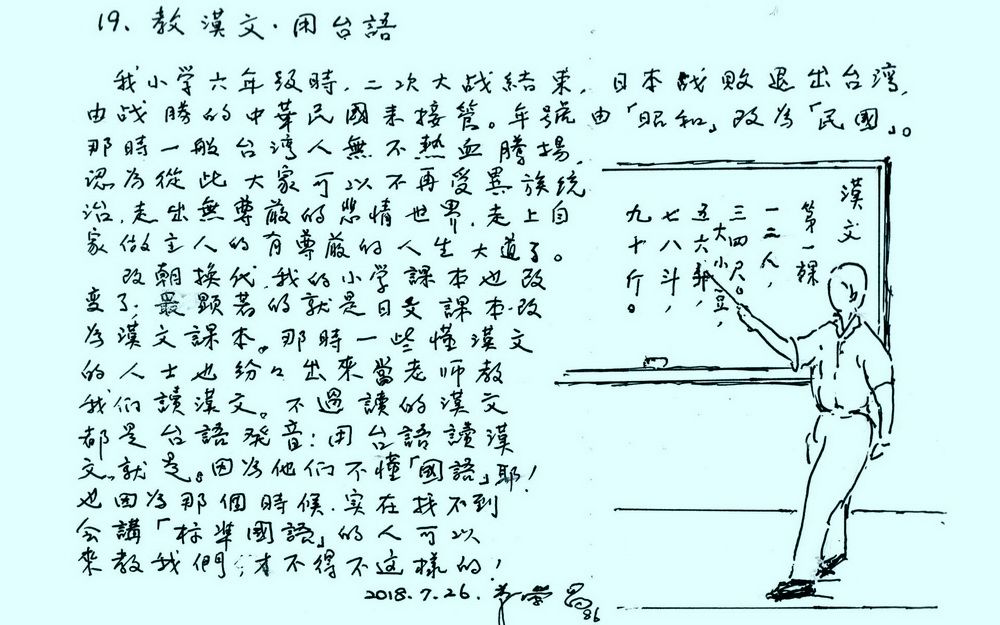 19、教漢文·用台語
我小学六年級時,二次大战結束,日本战敗退出台湾,
由战勝的中華民國来接管。年號由「昭和」改為「民國」。
那時一般台湾人無不熱血騰揚,
認為從此大家可以不再受異族统
治,走出無尊严的悲情世界,走上自
家做主人的有尊严的人生大道了。
改朝換代,我的小学課本也改
変了,最顕著的就是日文課本改
為漢文課本。那時一些懂漢文
的人士也纷々出來當老师教
我们讀漢文。不過讀的漢文
都是台語発音:用台語讀漢
文就是。因為他们不懂「國語」耶!
也因為那個時候,实在找不到
会講「标準國語」的人可以
來教我們,才不得不这樣的!
2018.7.26.
86
漢文
第一課
一二人,
三四尺。
大小豆,
五六
七八斗,
九十斤。